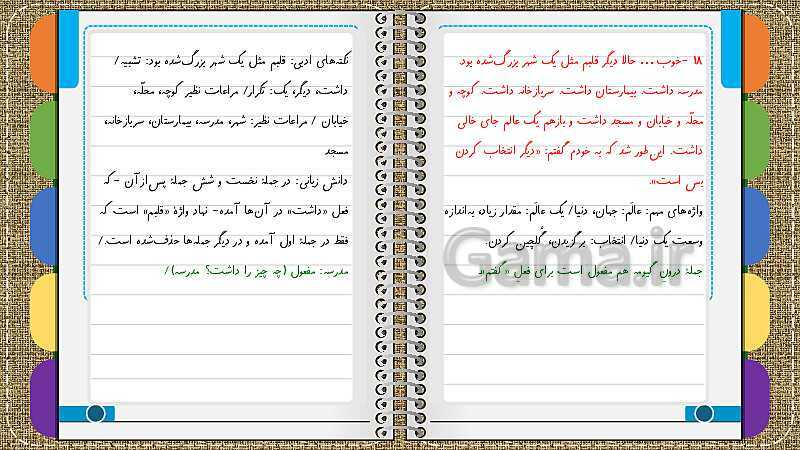 ۱۸ -خوب... حالا دیگر قلبم مثل یک شهر بزرگ‌شده بود.
مدرسه داشت. بیمارستان داشت. سربازخانه داشت. کوچه و
محلّه و خیابان و مسجد داشت و بازهم یک عالم جای خالی
داشت. این‌طور شد که به خودم گفتم: «دیگر انتخاب کردن
بس است».
واژه‌های مهم: عالَم: جهان، دنیا/ یک عالَم: مقدار زیاد، به‌اندازه
وسعت یک دنیا/ انتخاب: برگزیدن، گُلچین کردن.
جملهٔ درونِ گیومه هم مفعول است برای فعلِ «گفتم».
نکته‌های ادبی: قلبم مثل یک شهر بزرگ‌شده بود: تشبیه /
داشت، دیگر، یک: تکرار/ مراعات نظیر: کوچه، محلّه،
خیابان / مراعات نظیر: شهر، مدرسه، بیمارستان، سربازخانه،
مسجد
دانش زبانی: در جملهٔ نخست و شش جملهٔ پس‌از آن - که
فعل «داشت» در آن‌ها آمده- نهاد واژهٔ «قلبم» است که
فقط در جملهٔ اول آمده و در دیگر جمله‌ها حذف‌شده است./
مدرسه: مفعول (چه چیز را داشت؟ مدرسه)/
Gama.ir